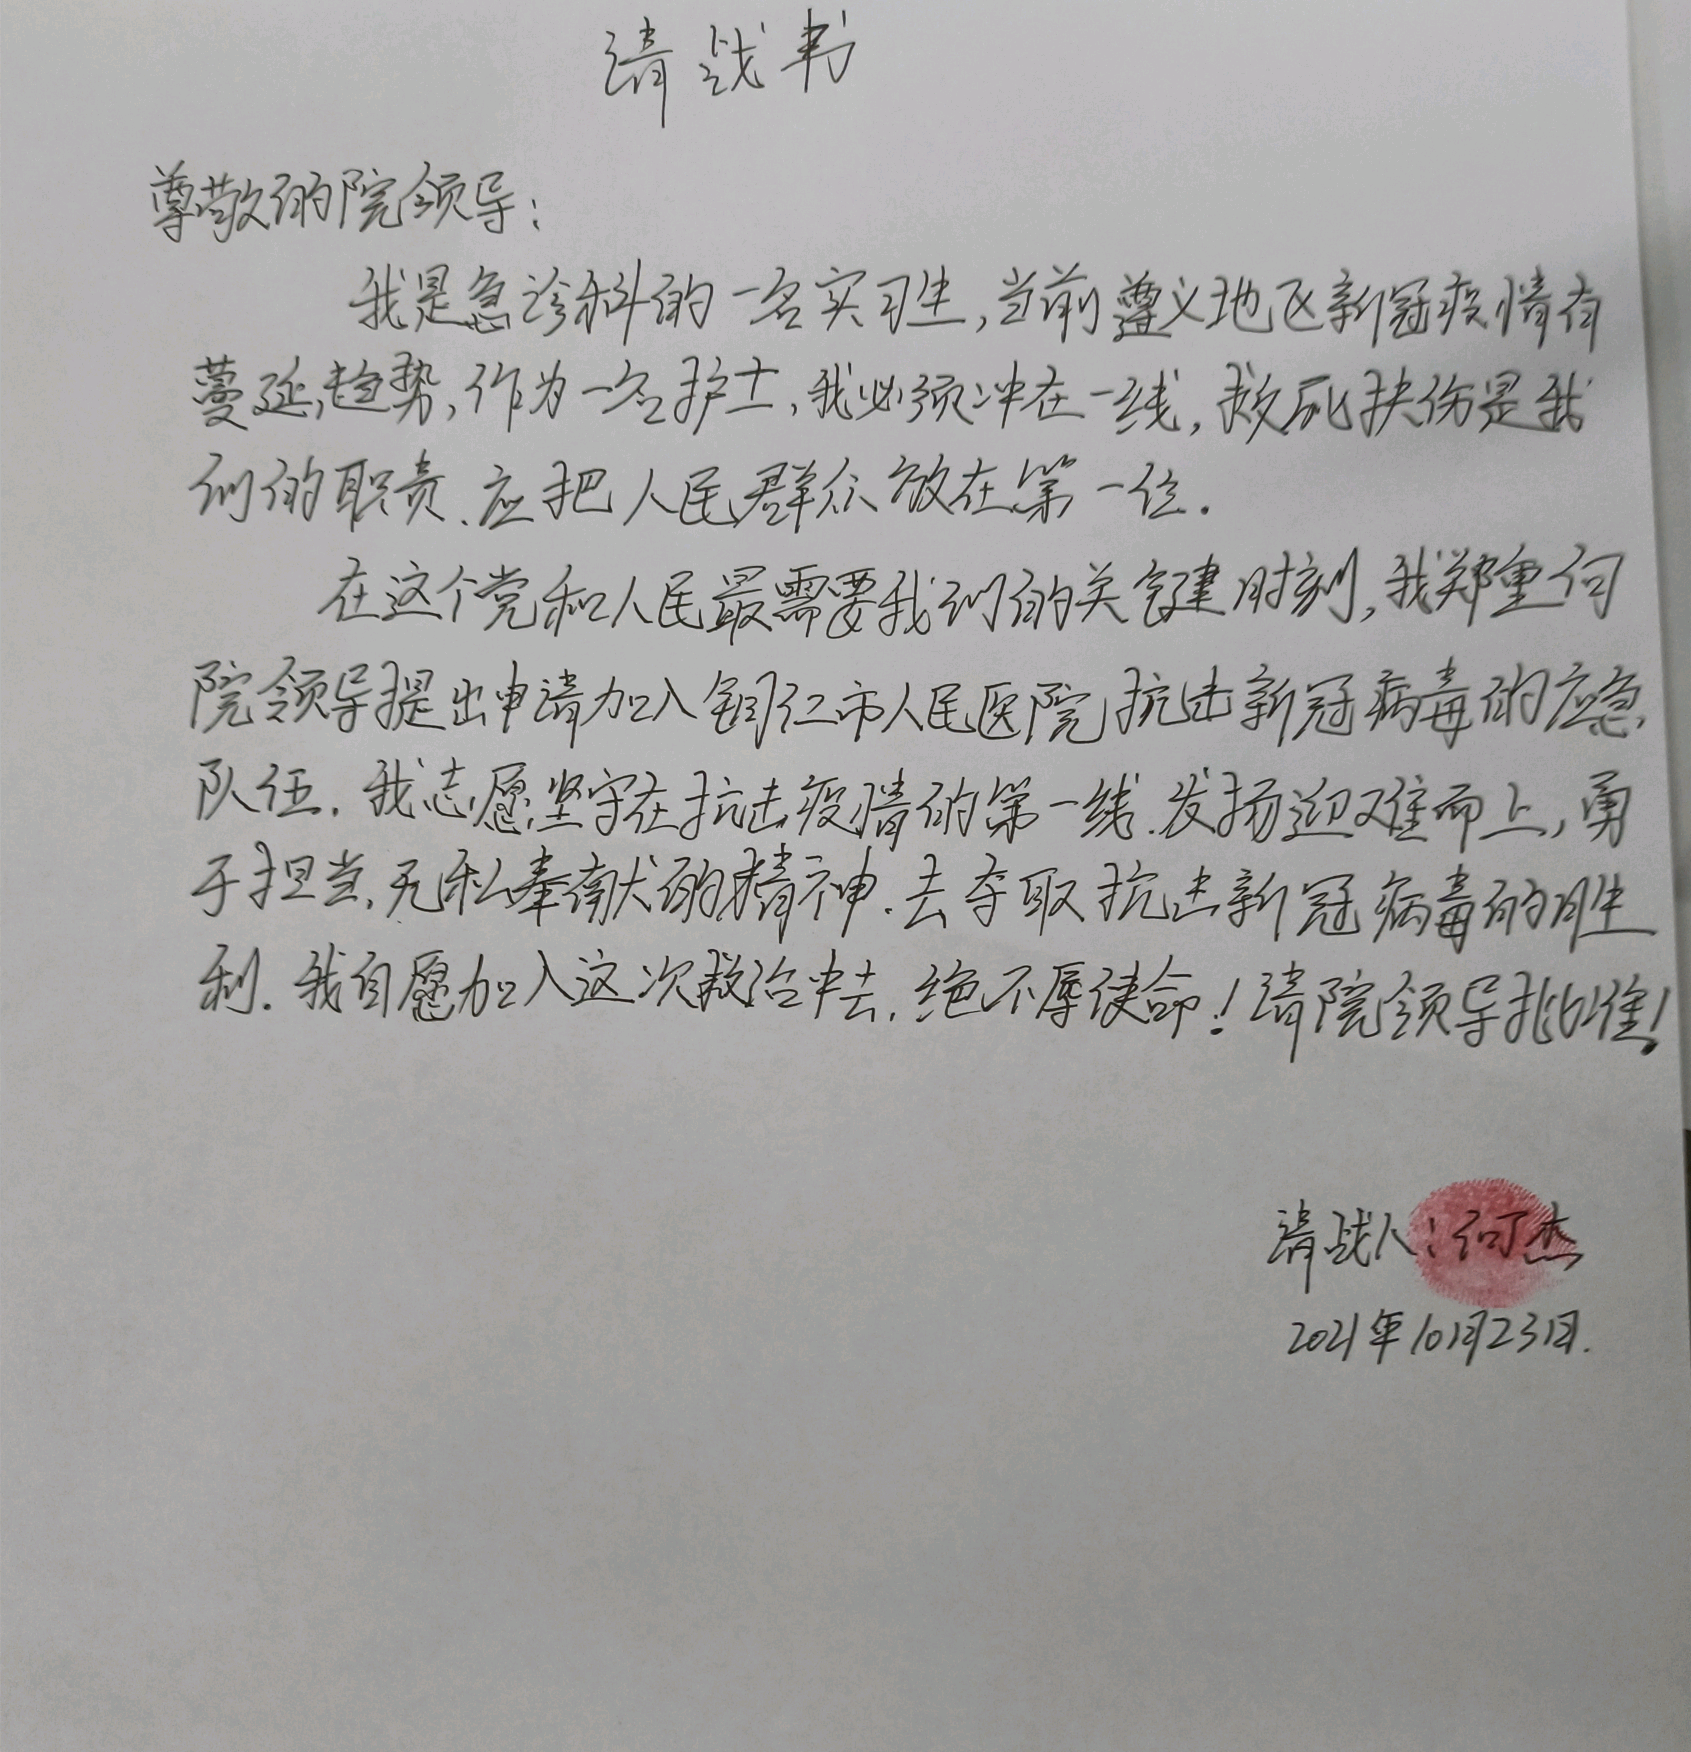 请战书
尊敬的院领导:
我是急诊科的一名实习生,当前遵义地区新冠疫情有
蔓延趋势,作为一名护士,我必须冲在一线,救死扶伤是我
们的职责、应把人民群众放在第一位.
在这个党和人民最需要我们的关键时刻,我郑重向
院领导提出申请加入铜仁市人民医院抗击新冠病毒的应急
队伍.我志愿坚守在抗击疫情的第一线.发扬迎难而上,勇
于担当,无私奉献的精神.去夺取抗击新冠病毒的胜
利.我自愿加入这次救治中去,绝不辱使命!请院领导批准!
请战人:何杰
2021年10月23日.